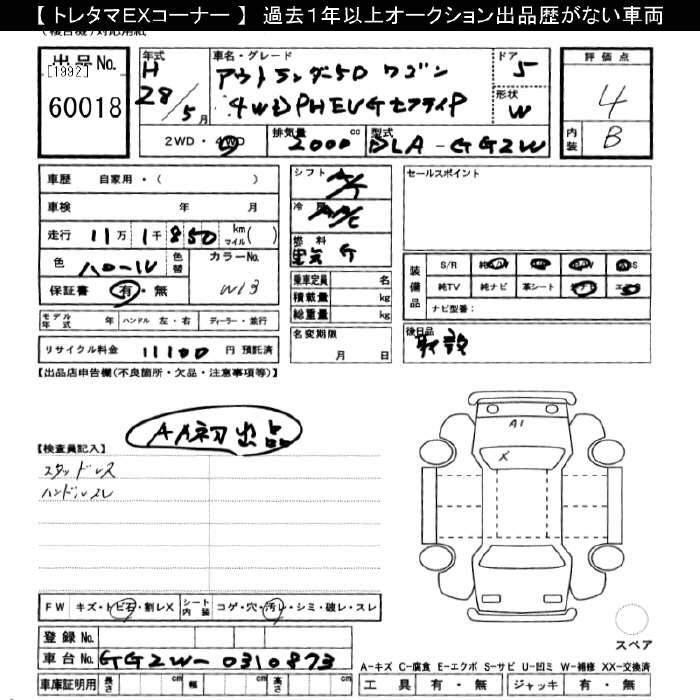 【トレタマEXコーナー】 過去1年以上オークション出品歴がない車両
出品No. [1992]
60018
年式 H 28/5月
車名・グレード アウトランダー5D ワゴン
4WD PHEV Gセフティ P
ドア 5
形状 W
評価点 4
内装 B
2WD・4WD
排気量 2000cc
型式 DLA-GG2W
車歴 自家用・( )
車検 年 月
走行 11万1千850 kmマイル( )
色 パール
色替
カラーNo. W13
保証書 有・無
シフト A/T
冷房 A/C
燃料 電気 G
乗車定員 名
積載量 kg
総重量 kg
名変期限 月 日
セールスポイント
装備品 S/R 純A/W
純TV 純ナビ 革シート
ナビ型番:
後日品
モデル年式 年 ハンドル 左・右 ディーラー・並行
リサイクル料金 11100 円 預託済
【出品店申告欄(不良箇所・欠品・注意事項等)】
AA初出品
【検査員記入】
スタッドレス
ハンドルスレ
A1
X
FW キズ・トビ石・割レX シート内装 コゲ・穴・汚レ・シミ・破レ・スレ
登録No.
車台No. GG2W-0310873
車庫証明用 長さ cm 幅 cm 高さ cm
スペア
A−キズ C−腐食 E−エクボ S−サビ U−凹ミ W−補修 XX−交換済
工具 有・無 ジャッキ 有・無